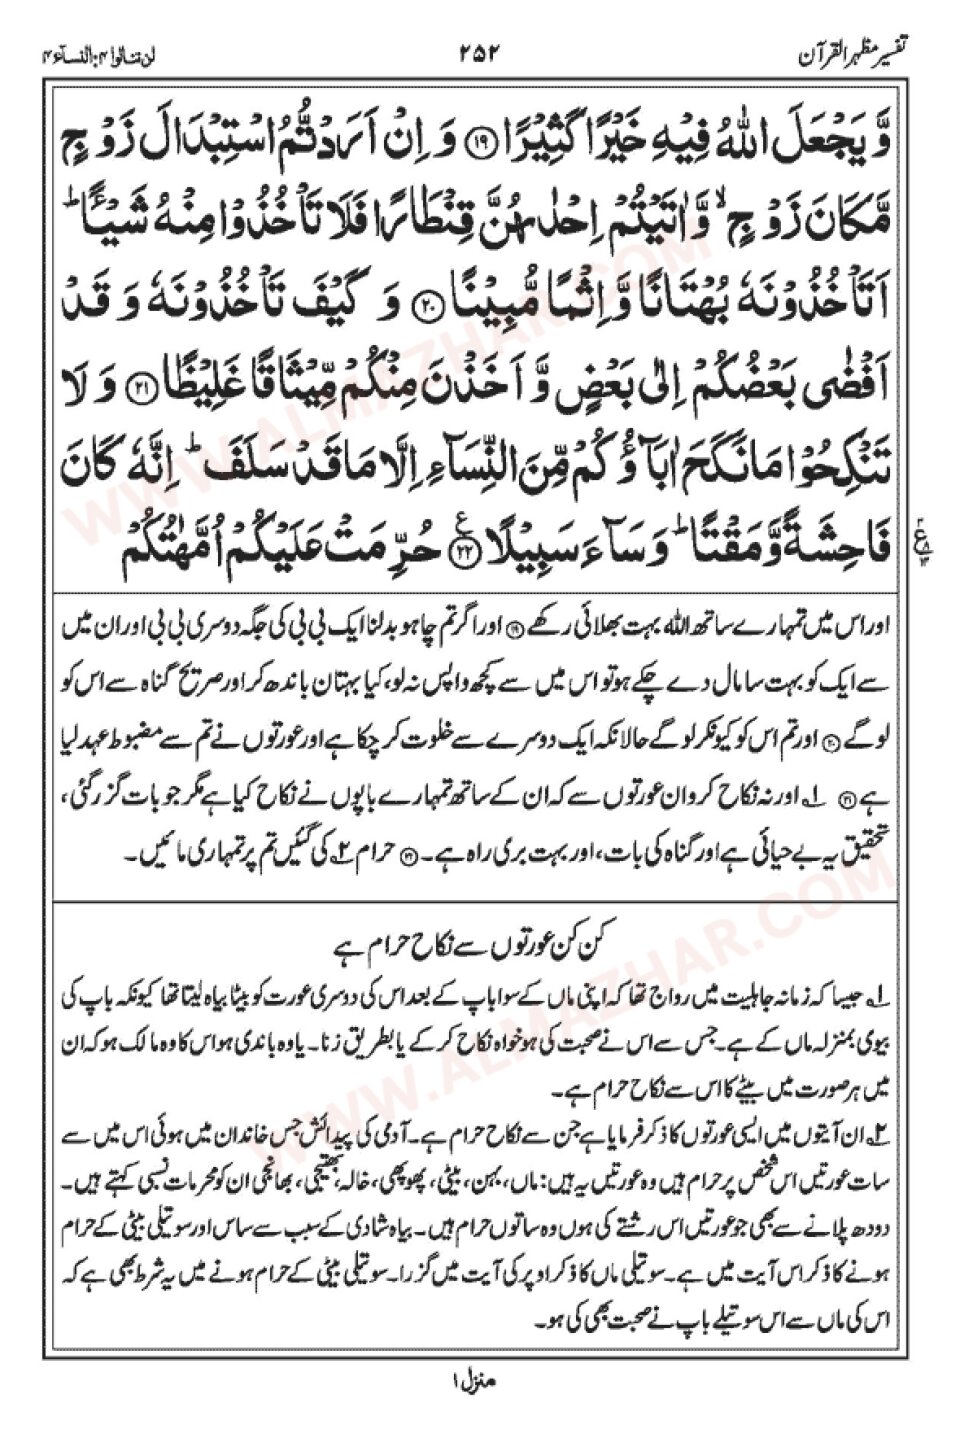 تفسیر مظہر القرآن
۲۵۲
لن تنالوا ۴: النسآء ۴
وَّ یَجْعَلَ اللّٰهُ فِیْهِ خَیْرًا كَثِیْرًا ﴿۱۹﴾ وَ اِنْ اَرَدْتُّمُ اسْتِبْدَالَ زَوْجٍ
مَّكَانَ زَوْجٍ ۙ وَّ اٰتَیْتُمْ اِحْدٰىهُنَّ قِنْطَارًا فَلَا تَاْخُذُوْا مِنْهُ شَیْــًٔا ؕ
اَتَاْخُذُوْنَهٗ بُهْتَانًا وَّ اِثْمًا مُّبِیْنًا ﴿۲۰﴾ وَ كَیْفَ تَاْخُذُوْنَهٗ وَ قَدْ
اَفْضٰى بَعْضُكُمْ اِلٰى بَعْضٍ وَّ اَخَذْنَ مِنْكُمْ مِّیْثَاقًا غَلِیْظًا ﴿۲۱﴾ وَ لَا
تَنْكِحُوْا مَا نَكَحَ اٰبَآؤُكُمْ مِّنَ النِّسَآءِ اِلَّا مَا قَدْ سَلَفَ ؕ اِنَّهٗ كَانَ
فَاحِشَةً وَّ مَقْتًا ؕ وَ سَآءَ سَبِیْلًا ﴿۲۲﴾ حُرِّمَتْ عَلَیْكُمْ اُمَّهٰتُكُمْ
اور اس میں تمہارے ساتھ اللہ بہت بھلائی رکھے ﴿۱۹﴾ اور اگر تم چاہو بدلنا ایک بی بی کی جگہ دوسری بی بی اور ان میں
سے ایک کو بہت سا مال دے چکے ہو تو اس میں سے کچھ واپس نہ لو، کیا بہتان باندھ کر اور صریح گناہ سے اس کو
لو گے ﴿۲۰﴾ اور تم اس کو کیونکر لو گے حالانکہ ایک دوسرے سے خلوت کر چکا ہے اور عورتوں نے تم سے مضبوط عہد لیا
ہے ﴿۲۱﴾ ۱؂ اور نہ نکاح کرو ان عورتوں سے کہ ان کے ساتھ تمہارے باپوں نے نکاح کیا ہے مگر جو بات گزر گئی،
تحقیق یہ بے حیائی ہے اور گناہ کی بات، اور بہت بری راہ ہے۔ ﴿۲۲﴾ حرام ۲؂ کی گئیں تم پر تمہاری مائیں۔
کن کن عورتوں سے نکاح حرام ہے
۱؂ جیسا کہ زمانہ جاہلیت میں رواج تھا کہ اپنی ماں کے سوا باپ کے بعد اس کی دوسری عورت کو بیٹا بیاہ لیتا تھا کیونکہ باپ کی
بیوی بمنزلہ ماں کے ہے۔ جس سے اس نے صحبت کی ہو خواہ نکاح کر کے یا بطریق زنا۔ یا وہ باندی ہو اس کا وہ مالک ہو کہ ان
میں ہر صورت میں بیٹے کا اس سے نکاح حرام ہے۔
۲؂ ان آیتوں میں ایسی عورتوں کا ذکر فرمایا ہے جن سے نکاح حرام ہے۔ آدمی کی پیدائش جس خاندان میں ہوئی اس میں سے
سات عورتیں اس شخص پر حرام ہیں وہ عورتیں یہ ہیں: ماں، بہن، بیٹی، پھوپھی، خالہ، بھتیجی، بھانجی ان کو محرمات نسبی کہتے ہیں۔
دودھ پلانے سے بھی جو عورتیں اس رشتے کی ہوں وہ ساتوں حرام ہیں۔ بیاہ شادی کے سبب سے ساس اور سوتیلی بیٹی کے حرام
ہونے کا ذکر اس آیت میں ہے۔ سوتیلی ماں کا ذکر اوپر کی آیت میں گزرا۔ سوتیلی بیٹی کے حرام ہونے میں یہ شرط بھی ہے کہ
اس کی ماں سے اس سوتیلے باپ نے صحبت بھی کی ہو۔
منزل ۱
WWW.ALMAZHAR.COM
WWW.ALMAZHAR.COM